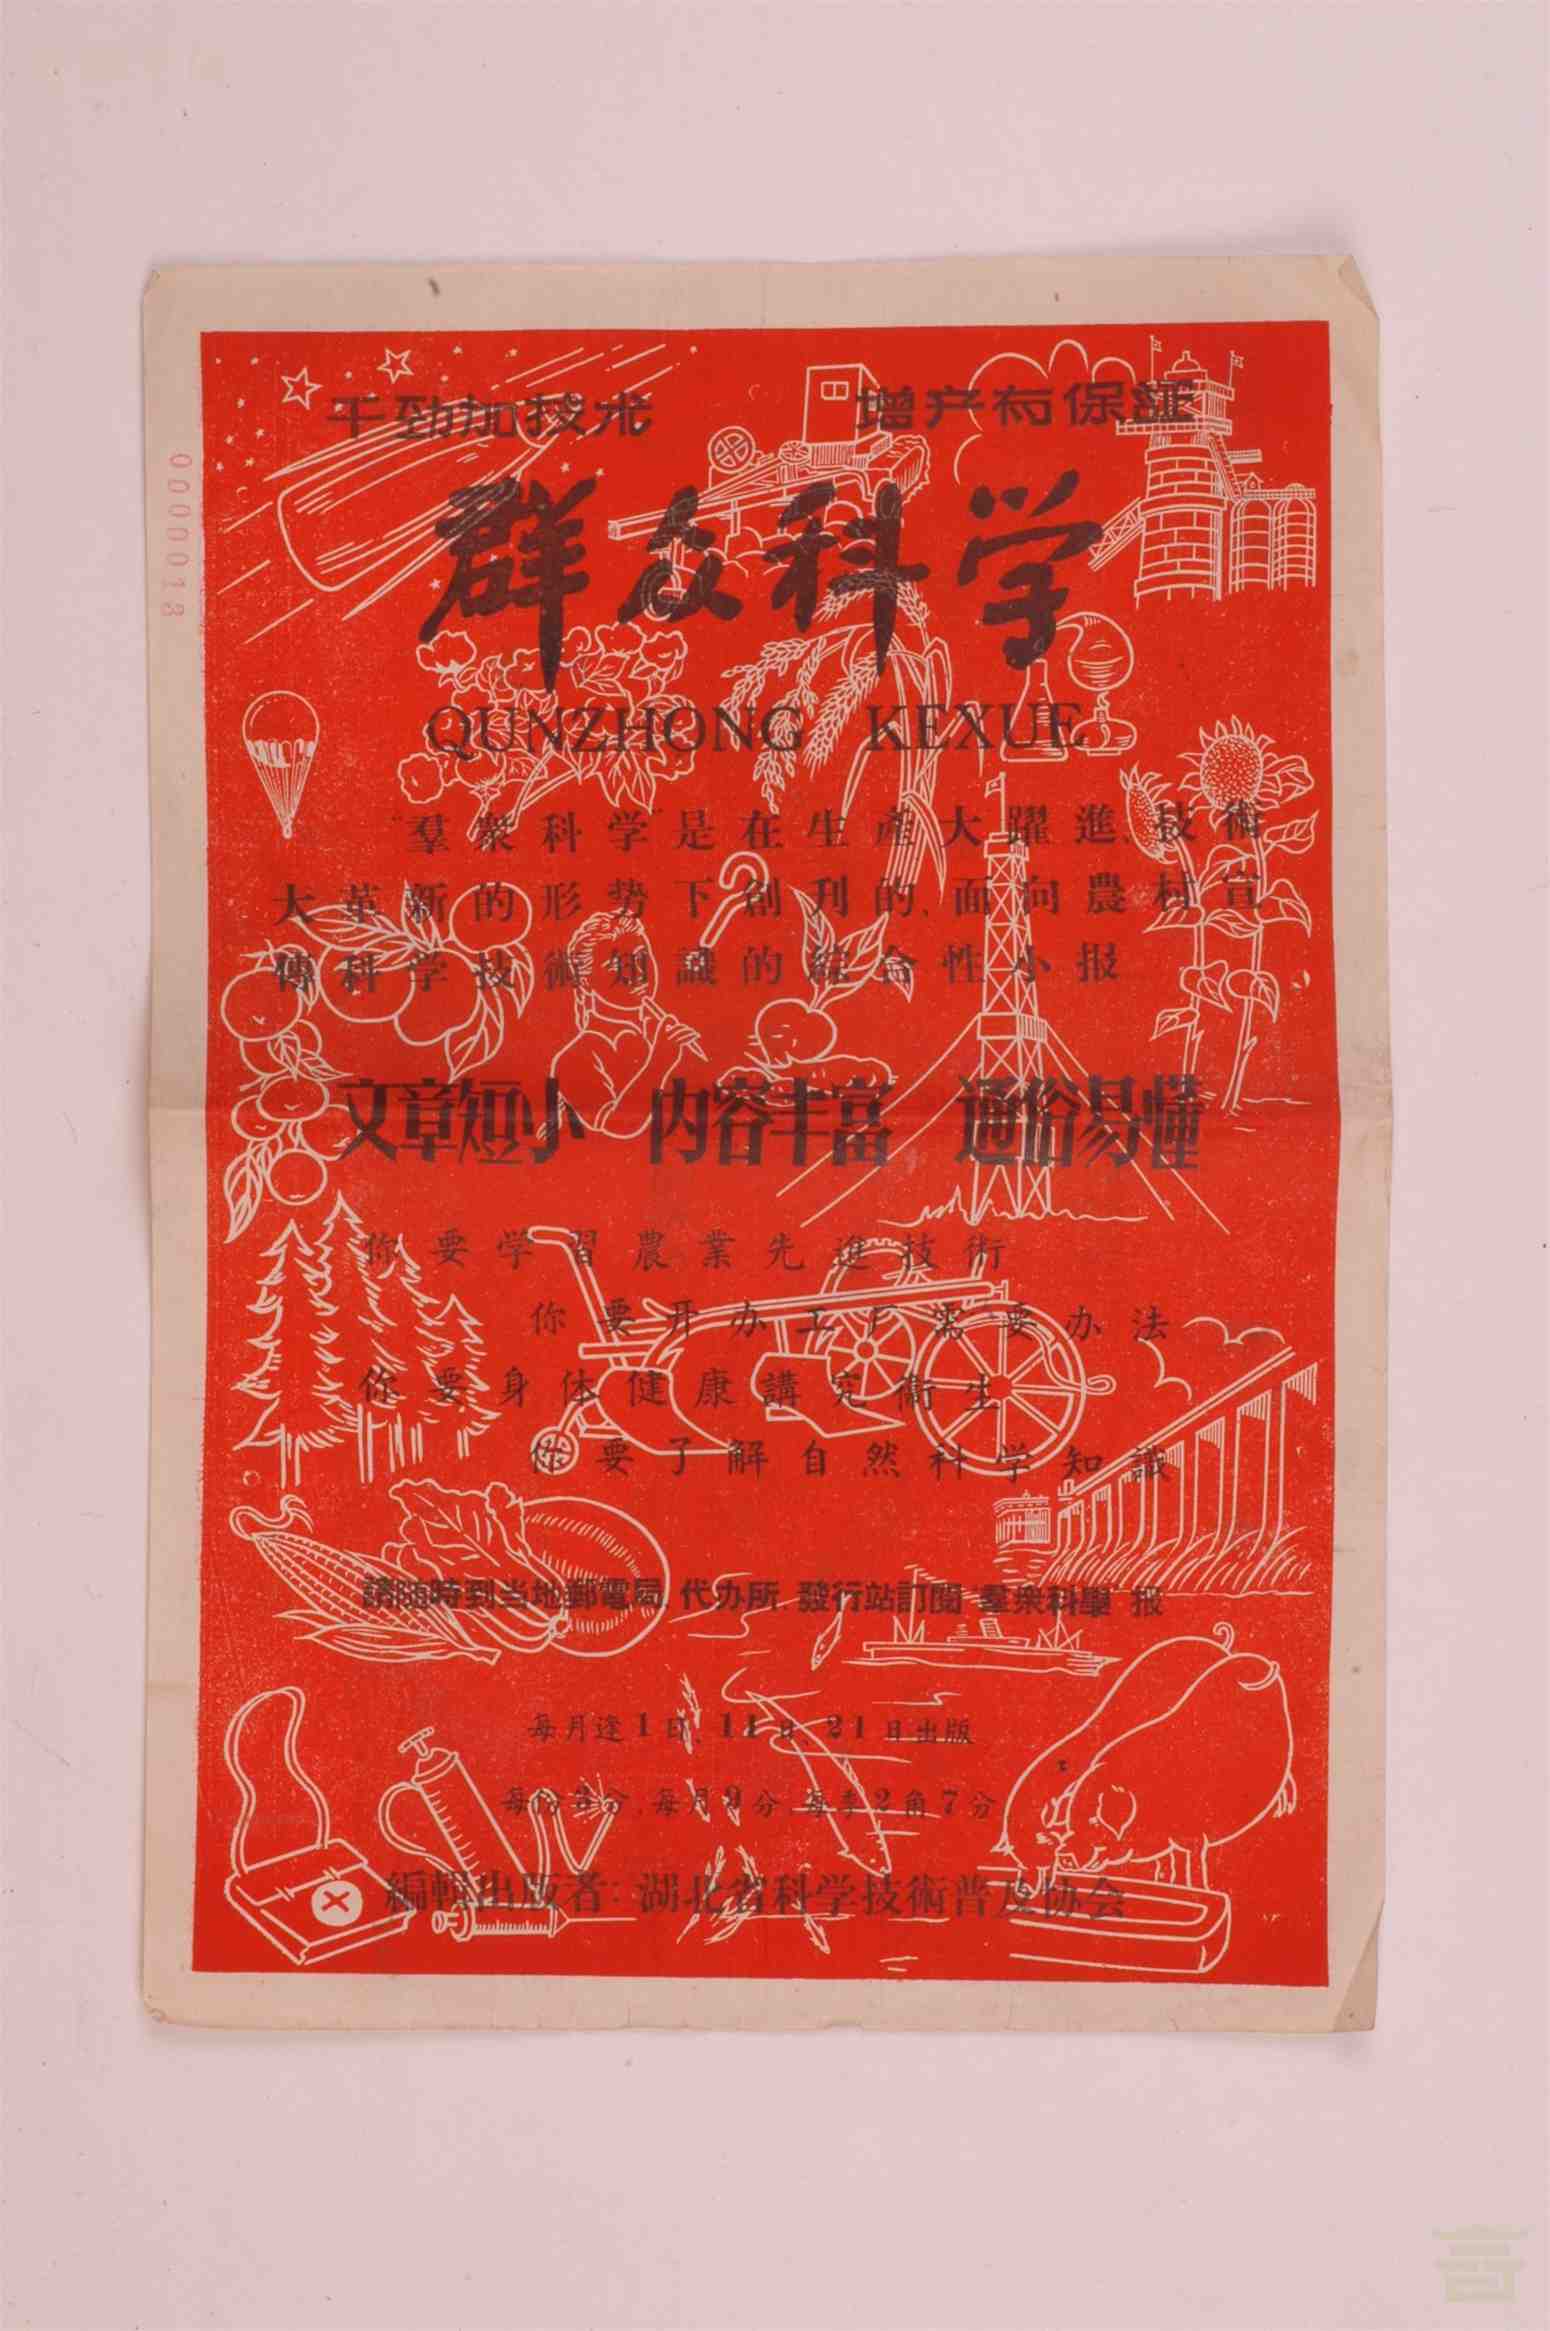 干劲加技术 增产有保証
群众科学
QUNZHONG KEXUE
“羣衆科学”是在生產大躍進、技術
大革新的形势下創刊的、面向農村宣
傳科学技術知識的綜合性小报
文章短小 内容丰富 通俗易懂
你要学習農業先進技術
你要开办工厂需要办法
你要身体健康講究衞生
你要了解自然科学知識
請随時到当地郵電局、代办所、發行站訂閱“羣衆科學”报
每月逢1日、11日、21日出版
每份3分、每月9分、每季2角7分
編輯出版者：湖北省科学技術普及协会
0000013